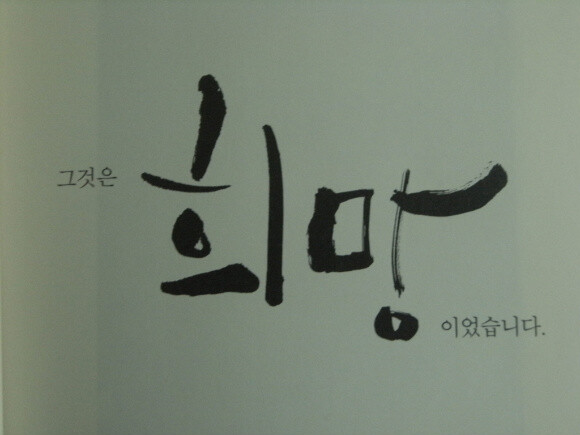 그것은
희망
이었습니다.